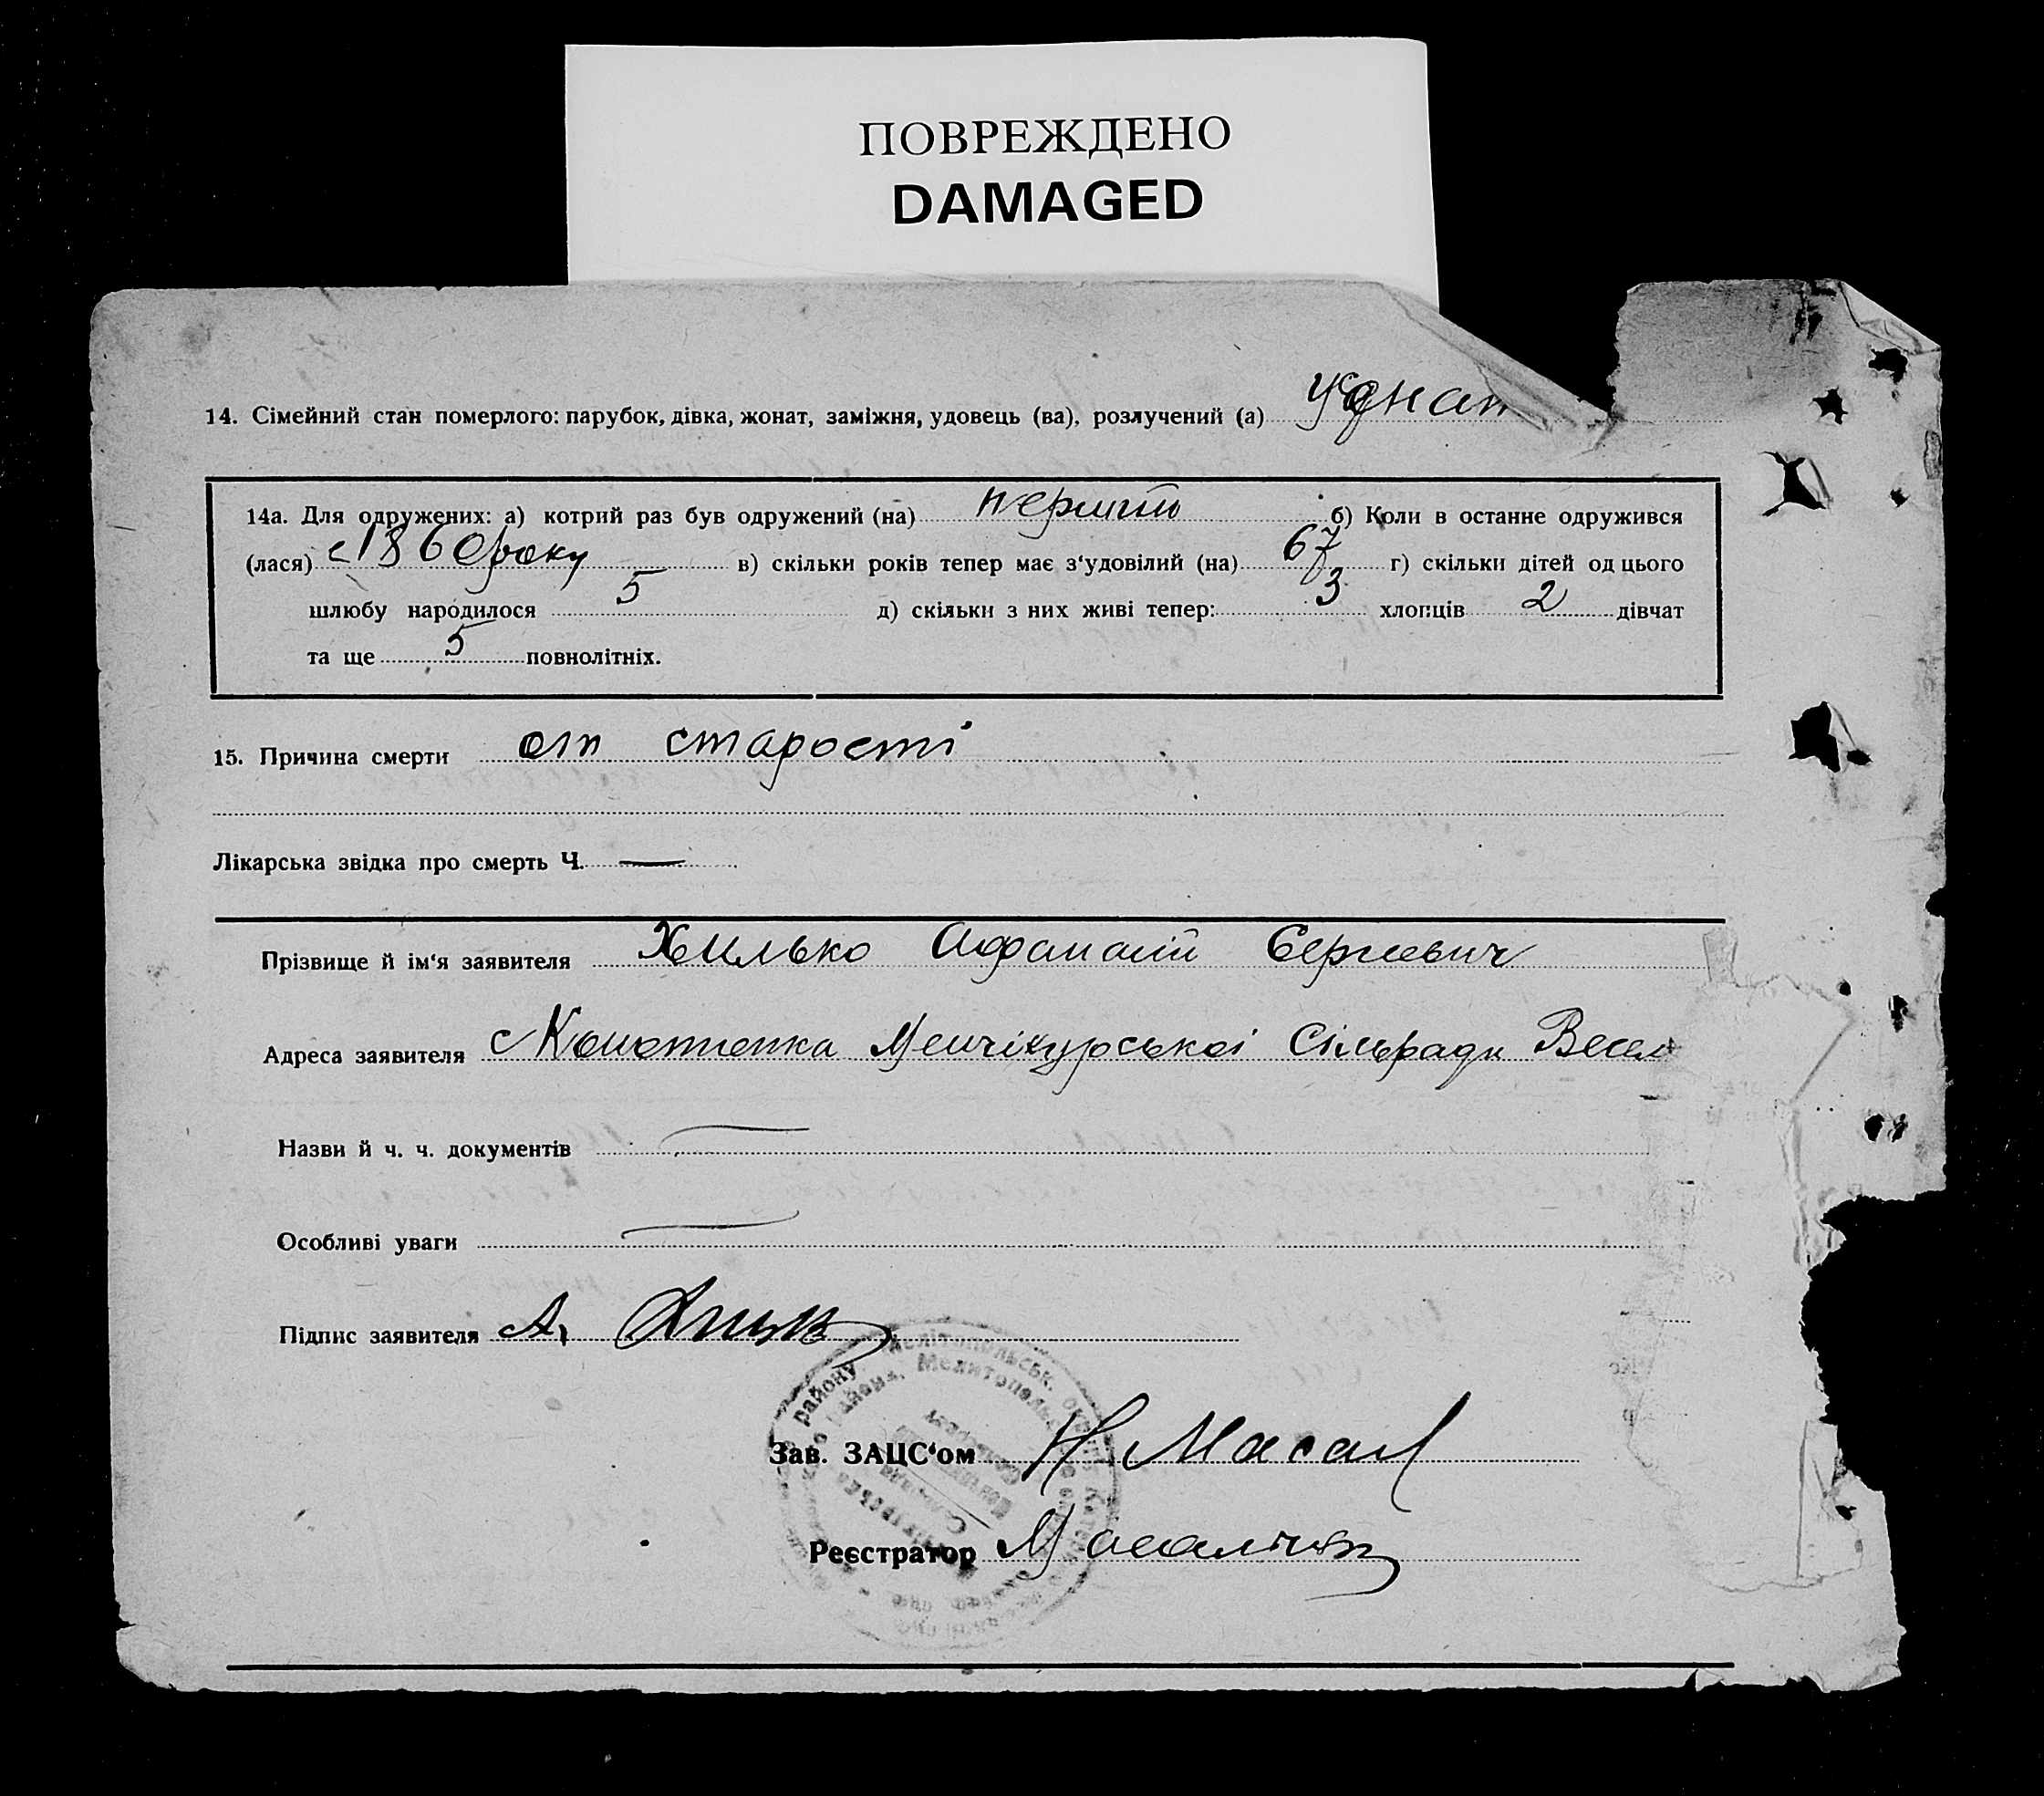 ПОВРЕЖДЕНО
DAMAGED
14. Сімейний стан померлого: парубок, дівка, жонат, заміжня, удовець (ва), розлучений (а)
14а. Для одружених: а) котрий раз був одружений (на) перший б) Коли в останнє одружився
(лася) с 1860 року в) скільки років тепер має з‘удовілий (на) 67 г) скільки дітей од цього
шлюбу народилося 5 д) скільки з них живі тепер: 3 хлопців 2 дівчат
та ще 5 повнолітніх.
15. Причина смерти от старості
Лікарська звідка про смерть Ч. —
Прізвище й ім‘я заявителя Хилько Афанасій Сергієвич
Адреса заявителя с Менчікурської Сільради Весел
Назви й ч. ч. документів —
Особливі уваги —
Підпис заявителя А.
району Мелітопольськ.
Зав. ЗАЦС‘ом Н Масал
Реєстратор